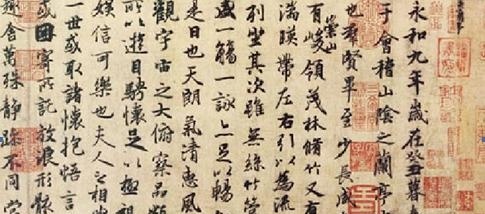 永和九年歲在癸丑暮
于會稽山陰之蘭亭
也群賢畢至少長咸
崇山
有峻領茂林脩竹又有
湍暎帶左右引以為流
列坐其次雖無絲竹管
盛一觴一詠亦足以暢
是日也天朗氣清惠風
觀宇宙之大俯察品類
所以遊目騁懷足以極視
娛信可樂也夫人之相
一世或取諸懷抱悟言
或因寄所託放浪形骸
趣舍萬殊靜躁不同當